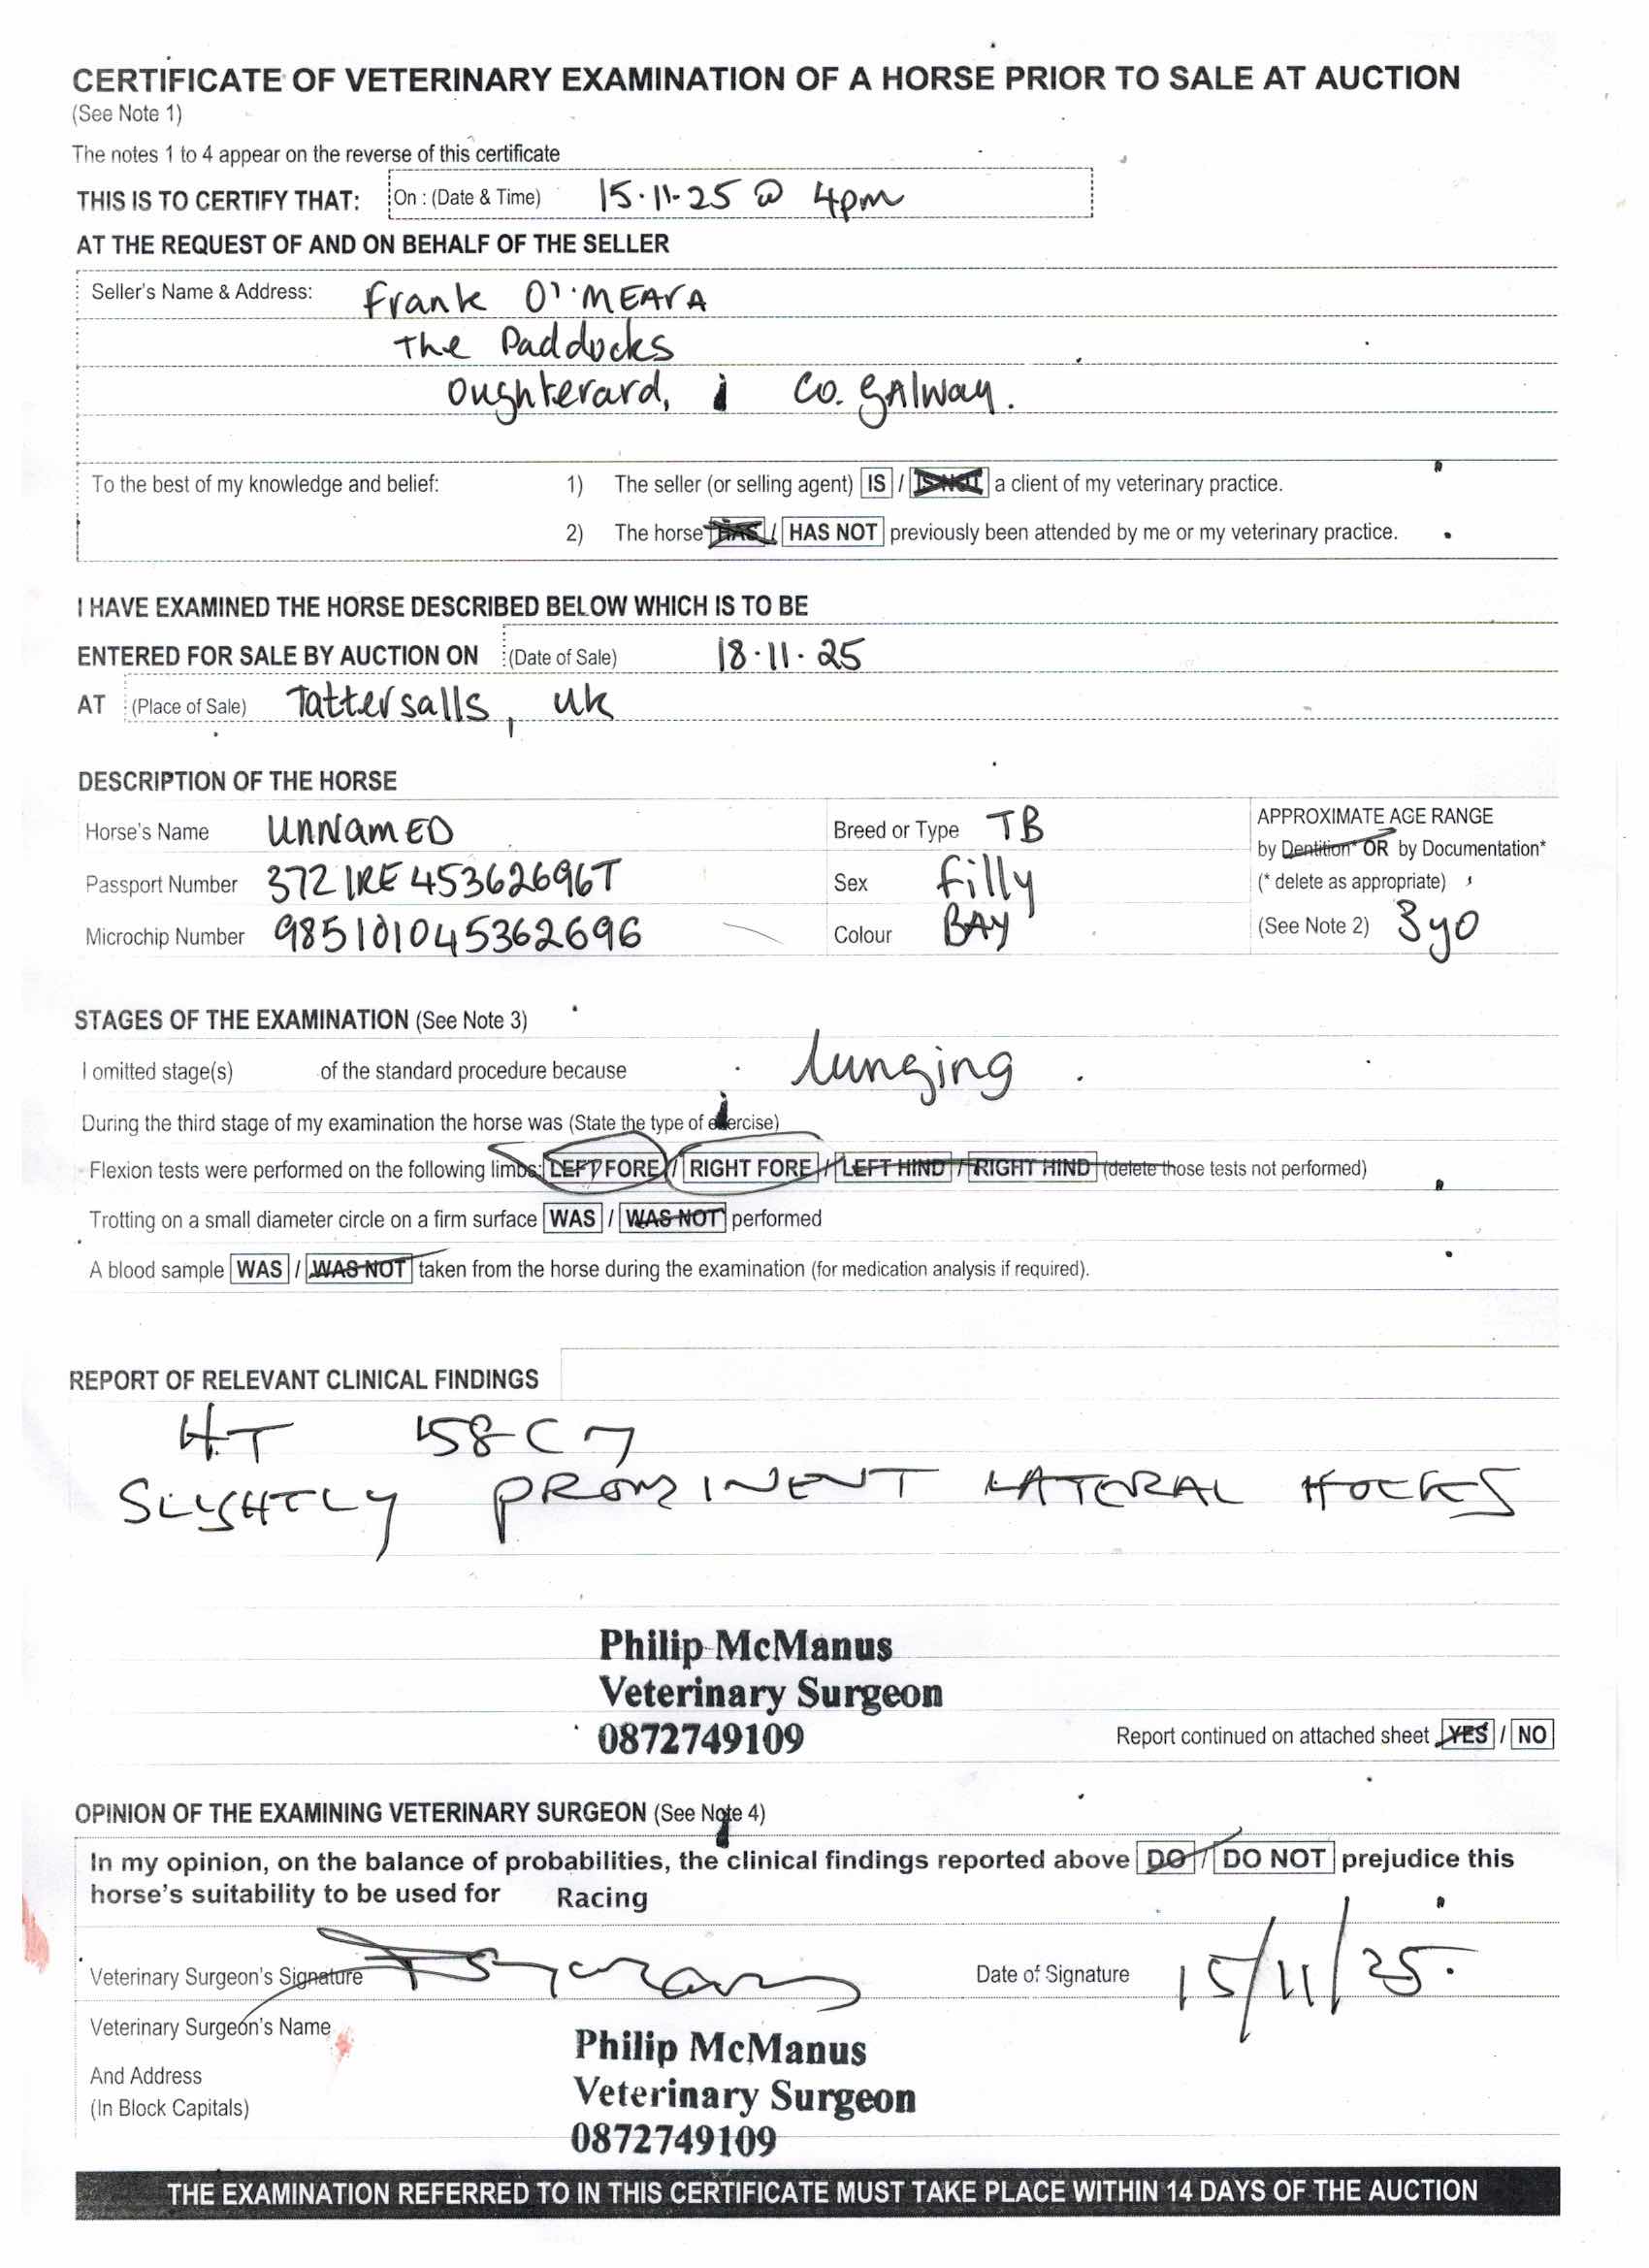 CERTIFICATE OF VETERINARY EXAMINATION OF A HORSE PRIOR TO SALE AT AUCTION
(See Note 1)
The notes 1 to 4 appear on the reverse of this certificate
THIS IS TO CERTIFY THAT: On : (Date & Time) 15·11·25 @ 4pm
AT THE REQUEST OF AND ON BEHALF OF THE SELLER
Seller's Name & Address: Frank O'MEARA
The Paddocks
Oughterard, Co. GAlway.
To the best of my knowledge and belief: 1) The seller (or selling agent) IS / IS NOT a client of my veterinary practice.
2) The horse HAS / HAS NOT previously been attended by me or my veterinary practice.
I HAVE EXAMINED THE HORSE DESCRIBED BELOW WHICH IS TO BE
ENTERED FOR SALE BY AUCTION ON (Date of Sale) 18·11·25
AT (Place of Sale) Tattersalls, UK
DESCRIPTION OF THE HORSE
Horse's Name UNNamED Breed or Type TB APPROXIMATE AGE RANGE
by Dentition* OR by Documentation*
Passport Number 372 IRE 45362696T Sex Filly (* delete as appropriate)
Microchip Number 985101045362696 Colour BAY (See Note 2) 3yo
STAGES OF THE EXAMINATION (See Note 3)
I omitted stage(s) of the standard procedure because lunging.
During the third stage of my examination the horse was (State the type of exercise)
Flexion tests were performed on the following limbs: LEFT FORE / RIGHT FORE / LEFT HIND / RIGHT HIND (delete those tests not performed)
Trotting on a small diameter circle on a firm surface WAS / WAS NOT performed
A blood sample WAS / WAS NOT taken from the horse during the examination (for medication analysis if required).
REPORT OF RELEVANT CLINICAL FINDINGS
HT 158 C7
SLIGHTLY PROMINENT LATERAL HOCKS
Philip McManus
Veterinary Surgeon
0872749109
Report continued on attached sheet YES / NO
OPINION OF THE EXAMINING VETERINARY SURGEON (See Note 4)
In my opinion, on the balance of probabilities, the clinical findings reported above DO / DO NOT prejudice this
horse's suitability to be used for Racing
Veterinary Surgeon's Signature Date of Signature 15/11/25.
Veterinary Surgeon's Name
And Address
(In Block Capitals)
Philip McManus
Veterinary Surgeon
0872749109
THE EXAMINATION REFERRED TO IN THIS CERTIFICATE MUST TAKE PLACE WITHIN 14 DAYS OF THE AUCTION